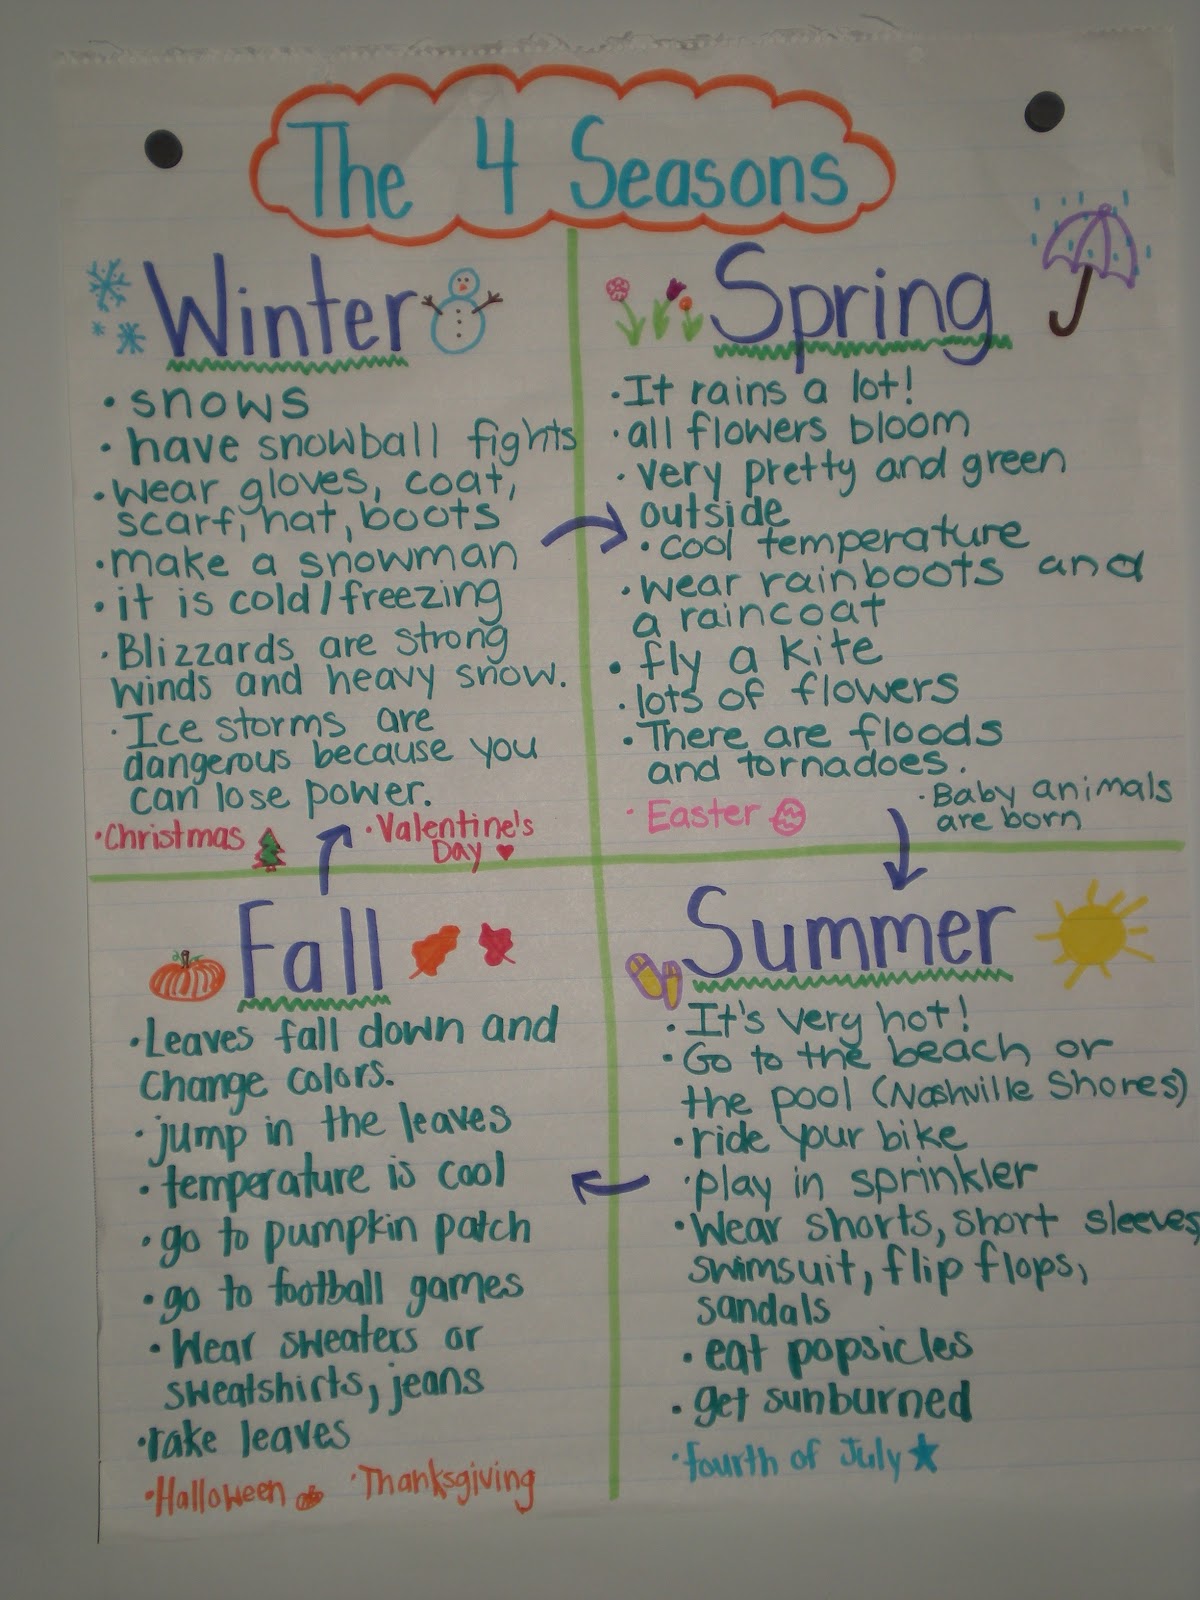 The 4 Seasons
Winter
• snows
• have snowball fights
• wear gloves, coat,
scarf, hat, boots
• make a snowman
• it is cold/freezing
• Blizzards are strong
winds and heavy snow.
• Ice storms are
dangerous because you
can lose power.
• Christmas
• Valentine's
Day
Spring
• It rains a lot!
• all flowers bloom
• very pretty and green
outside
• cool temperature
• wear rainboots and
a raincoat
• fly a kite
• lots of flowers
• There are floods
and tornadoes.
• Easter
• Baby animals
are born
Fall
• Leaves fall down and
change colors.
• jump in the leaves
• temperature is cool
• go to pumpkin patch
• go to football games
• Wear sweaters or
sweatshirts, jeans
• rake leaves
• Halloween
• Thanksgiving
Summer
• It's very hot!
• Go to the beach or
the pool (Nashville Shores)
• ride your bike
• play in sprinkler
• Wear shorts, short sleeves,
swimsuit, flip flops,
sandals
• eat popsicles
• get sunburned
• fourth of July